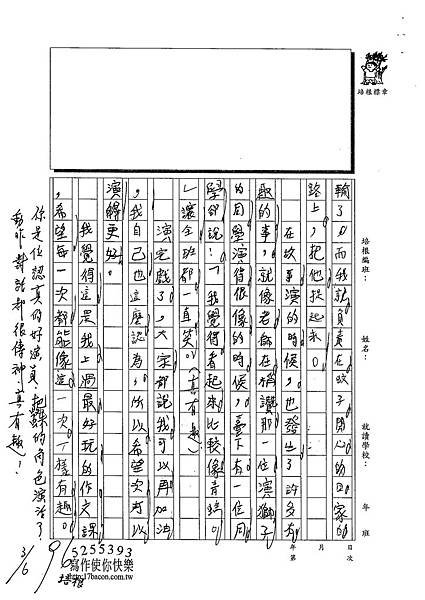 培根標章
培根編班：
姓名：
就讀學校：
年 班
年 月 日
第 次
輸了。而我就負責在蚊子開心的回家的
路上，把他捉起來。
在故事演的時候，也發生了許多有
趣的事，就像老師在稱讚那一位演獅子
的同學演得很像的時候，臺下有一位同
學卻說：「我覺得看起來比較像青蛙。
」讓全班都一直笑。（真有趣）
演完戲了，大家都說我可以再加油
，我自己也這麼認為，所以希望次可以
演得更好。
我覺得這是我上過最好玩的作文課
，希望每一次都能像這一次一樣有趣。
你是位認真的好演員，把的角色演活了，
動作對話都很傳神，真有趣！
3/6
96
5255393
寫作使你快樂
培根 http://17bacon.com.tw